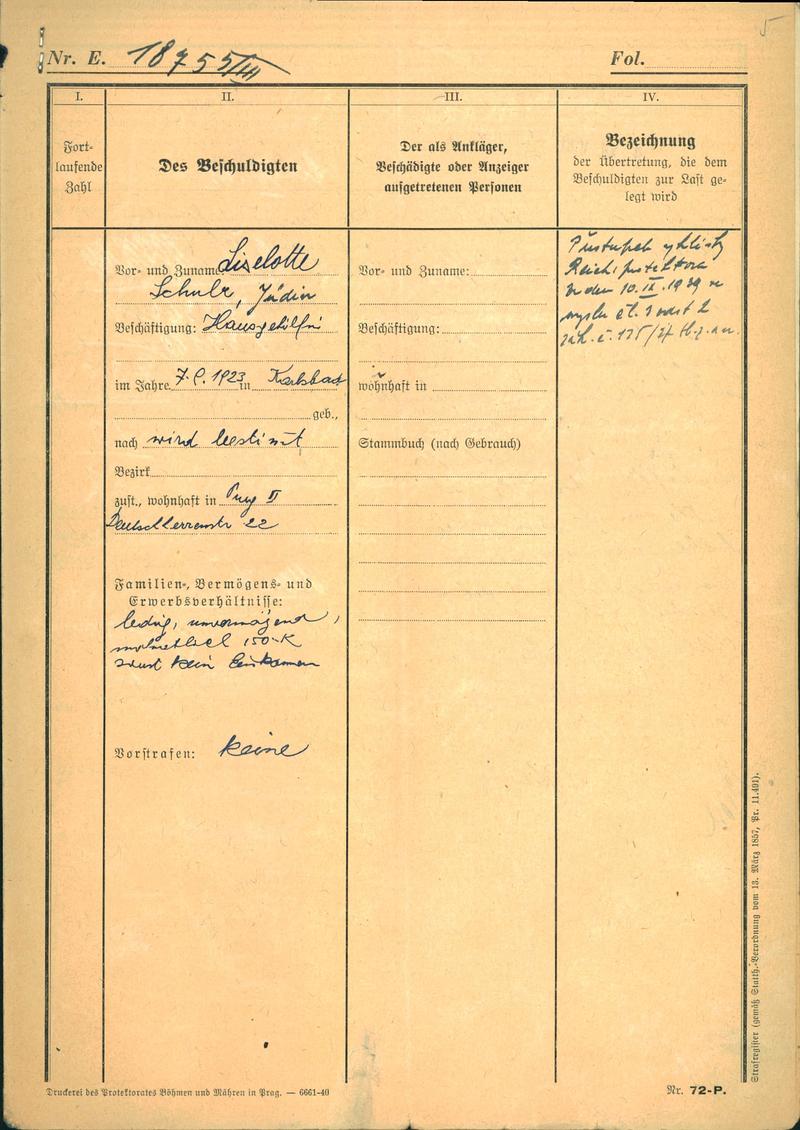 Nr. E. 18755/III
Fol.
I.
II.
III.
IV.
Fort-
laufende
Zahl
Des Beschuldigten
Der als Ankläger,
Beschädigte oder Anzeiger
aufgetretenen Personen
Bezeichnung
der Übertretung, die dem
Beschuldigten zur Last ge-
legt wird
Vor- und Zuname Liselotte
Schulz, Jüdin
Beschäftigung: Hausgehilfin
im Jahre 7. 1923 in Karlsbad
geb.,
nach wird bestimmt
Bezirk
zust., wohnhaft in Prag II
Deutschherrenstr 22
Familien-, Vermögens- und
Erwerbsverhältnisse:
ledig, unvermögend,
150 K
sonst kein Einkommen
Vorstrafen: keine
Vor- und Zuname:
Beschäftigung:
wohnhaft in
Stammbuch (nach Gebrauch)
Přestupek vyhlášky
Reichsprotektora
1939 ve
smyslu čl.
zák. č.
Strafregister (gemäß Statth.-Verordnung vom 13. März 1857, Pr. 11.491).
Druckerei des Protektorates Böhmen und Mähren in Prag. — 6661-40
Nr. 72-P.